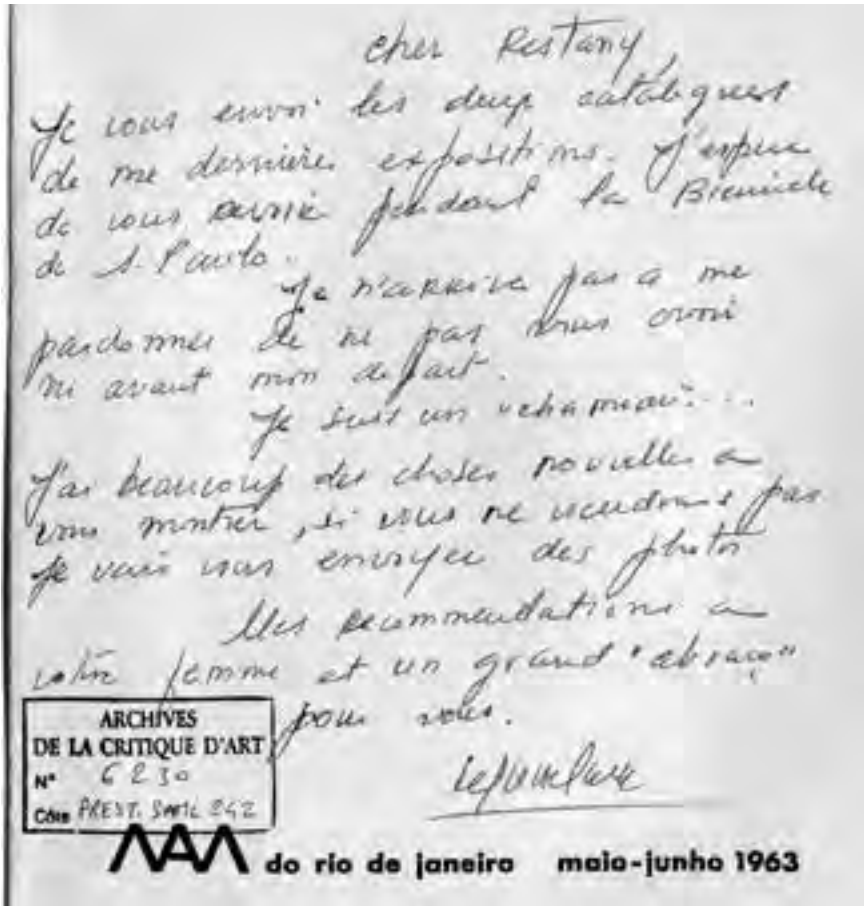 cher Restany,
Je vous envoi les deux catalogues
de me dernières expositions. J'espère
de vous revoir pendant la Biennale
de S. Paulo.
Je n'arrive pas a me
pardonner de ne pas vous
ni avant mon depart.
Je suis un
J'ai beaucoup des choses nouvelles a
vous montrer, si vous ne viendrons pas
je vais vous envoyer des photos
Mes recommendations a
votre femme et un grand "abraço"
pour vous.
ARCHIVES
DE LA CRITIQUE D'ART
N° 6230
Côte PREST. SAML 242
MAM do rio de janeiro maio-junho 1963